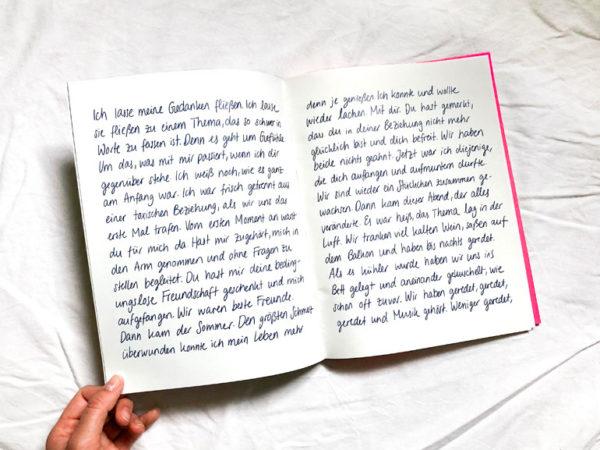 Ich lasse meine Gedanken fließen. Ich lasse
sie fließen zu einem Thema, das so schwer in
Worte zu fassen ist. Denn es geht um Gefühle.
Um das, was mit mir passiert, wenn ich dir
gegenüber stehe. Ich weiß noch, wie es ganz
am Anfang war. Ich war frisch getrennt aus
einer toxischen Beziehung, als wir uns das
erste Mal trafen. Vom ersten Moment an warst
du für mich da. Hast mir zugehört, mich in
den Arm genommen und ohne Fragen zu
stellen begleitet. Du hast mir deine beding-
ungslose Freundschaft geschenkt und mich
aufgefangen. Wir waren beste Freunde.
Dann kam der Sommer. Den größten Schmerz
überwunden konnte ich mein Leben mehr
denn je genießen. Ich konnte und wollte
wieder lachen. Mit dir. Du hast gemerkt,
dass du in deiner Beziehung nicht mehr
glücklich bist und dich befreit. Wir haben
beide nichts geahnt. Jetzt war ich diejenige,
die dich auffangen und aufmuntern durfte.
Wir sind wieder ein Stückchen zusammen ge-
wachsen. Dann kam dieser Abend, der alles
veränderte. Es war heiß, das Thema lag in der
Luft. Wir tranken viel kalten Wein, saßen auf
dem Balkon und haben bis nachts geredet.
Als es kühler wurde haben wir uns ins
Bett gelegt und aneinander gekuschelt, wie
schon oft zuvor. Wir haben geredet, geredet,
geredet und Musik gehört. Weniger geredet,